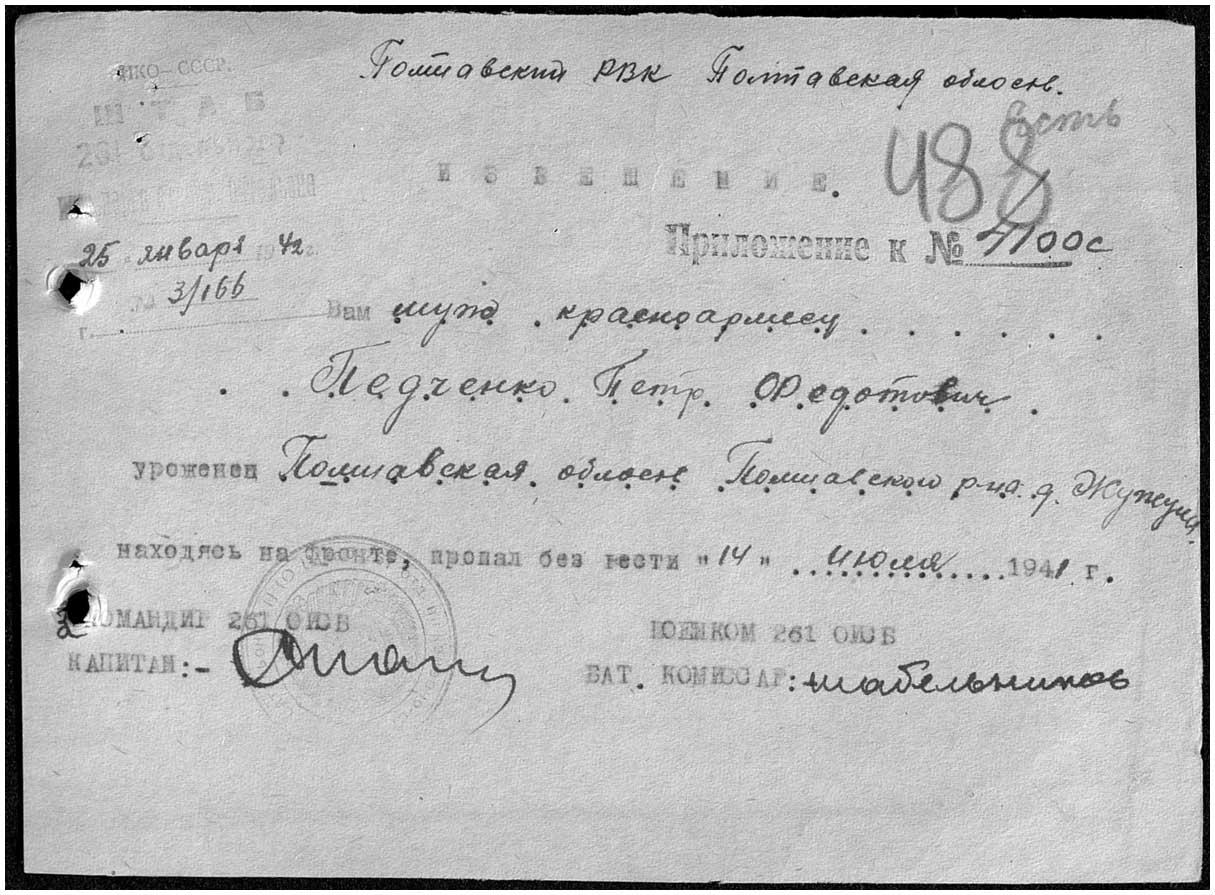 Полтавский РВК Полтавская област.
НКО–СССР.
ШТАБ
261 отдельного
есть
488
ИЗВЕЩЕНИЕ.
Приложение к № 4100с
25 января 1942 г.
№ 3/166
г.
Вам муж красноармеец
Педченко Петр Федотович.
уроженец Полтавская област Полтавского р-на д.
находясь на фронте, пропал без вести "14" июля 1941 г.
КОМАНДИР 261 ОИСБ
КАПИТАН:-
ВОЕНКОМ 261 ОИСБ
БАТ. КОМИССАР: Шабельников